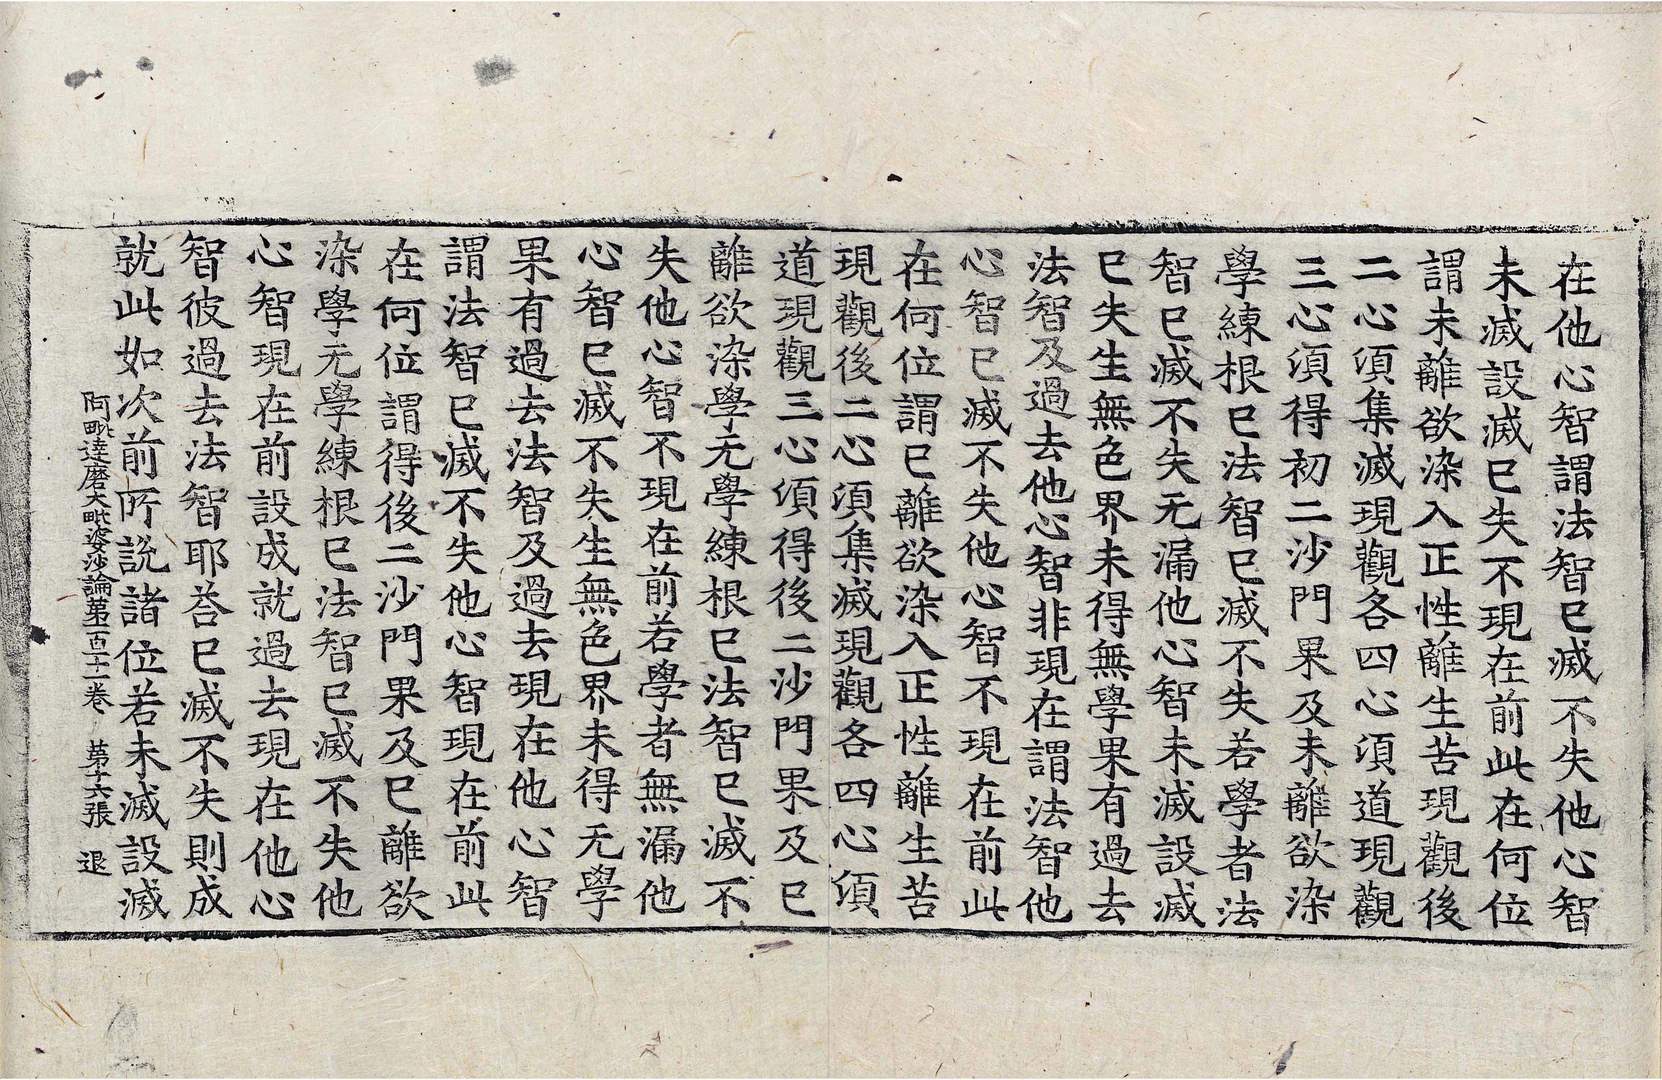 在他心智謂法智已滅不失他心智
未滅設滅已失不現在前此在何位
謂未離欲染入正性離生苦現觀後
二心湏集滅現觀各四心湏道現觀
三心湏得初二沙門果及未離欲染
學練根已法智已滅不失若學者法
智已滅不失无漏他心智未滅設滅
已失生無色界未得無學果有過去
法智及過去他心智非現在謂法智他
心智已滅不失他心智不現在前此
在何位謂已離欲染入正性離生苦
現觀後二心湏集滅現觀各四心湏
道現觀三心湏得後二沙門果及已
離欲染學无學練根已法智已滅不
失他心智不現在前若學者無漏他
心智已滅不失生無色界未得无學
果有過去法智及過去現在他心智
謂法智已滅不失他心智現在前此
在何位謂得後二沙門果及已離欲
染學无學練根已法智已滅不失他
心智現在前設成就過去現在他心
智彼過去法智耶荅已滅不失則成
就此如次前所說諸位若未滅設滅
阿毗達磨大毗婆沙論第百十一卷 第十六張 退